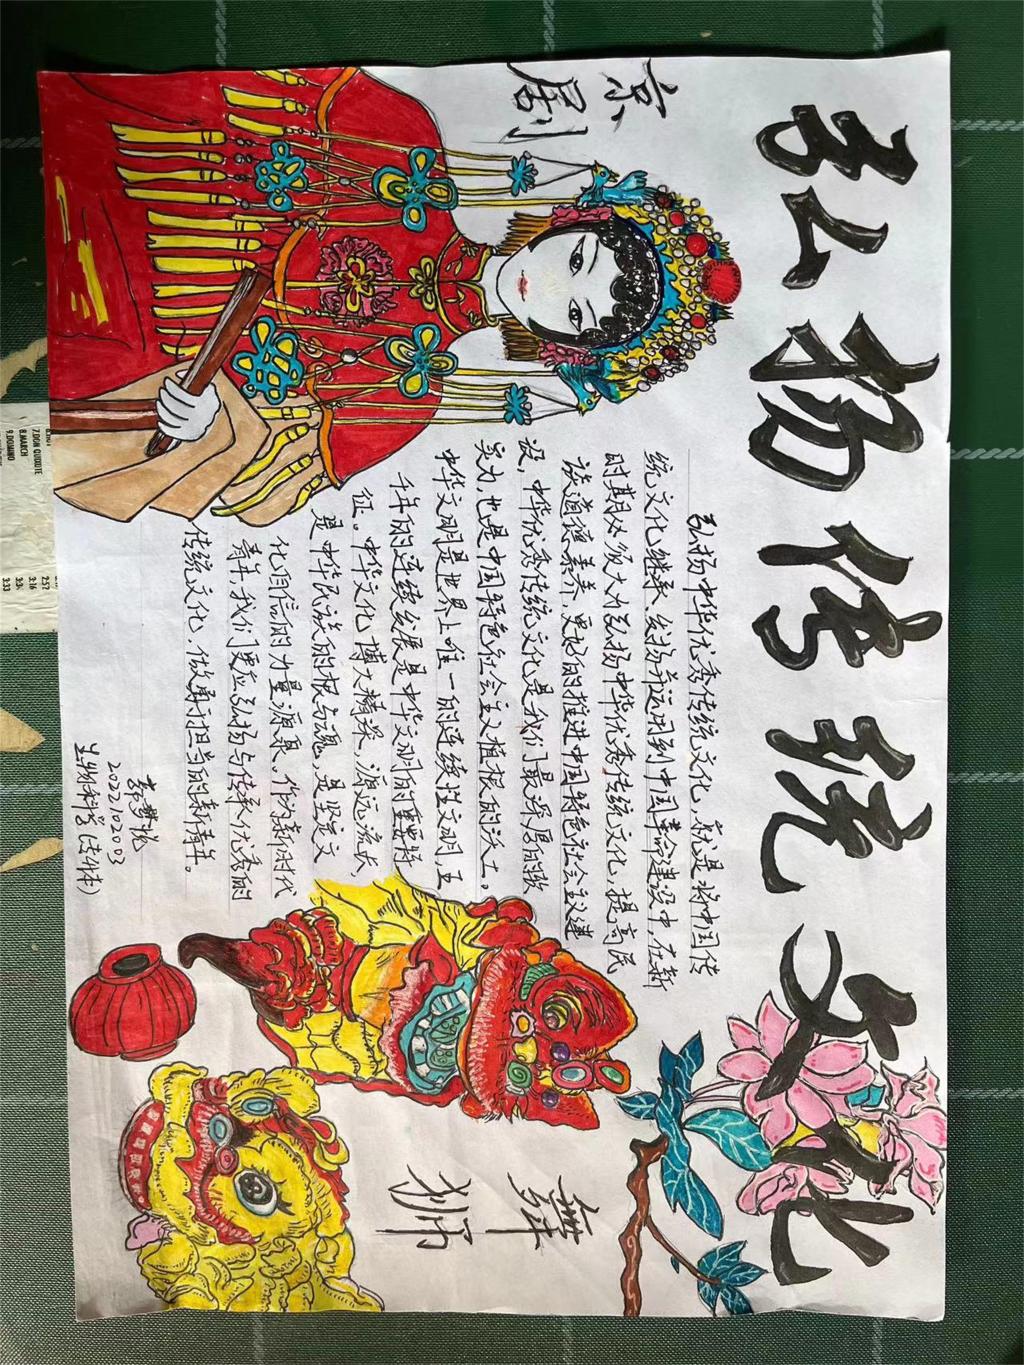 弘扬传统文化
京剧
弘扬中华优秀传统文化,就是将中国传
统文化继承、发扬并运用到中国革命建设中,在新
时期必须大力弘扬中华优秀传统文化,提高民
族道德素养,更好的推进中国特色社会主义建
设,中华优秀传统文化是我们最深厚的软
实力,也是中国特色社会主义植根的沃土。
中华文明是世界上唯一的连续性文明,五
千年的连续发展是中华文明的重要特
征。中华文化博大精深、源远流长,
是中华民族的根与魂,是坚定文
化自信的力量源泉。作为新时代
青年,我们更应弘扬与传承优秀的
传统文化,做勇担当的新青年。
2022102003
生物科学(专升本)
舞狮
7.DON QUIXOTE
8.MARCH
9.DOMINO
2:57
3:16
3:33